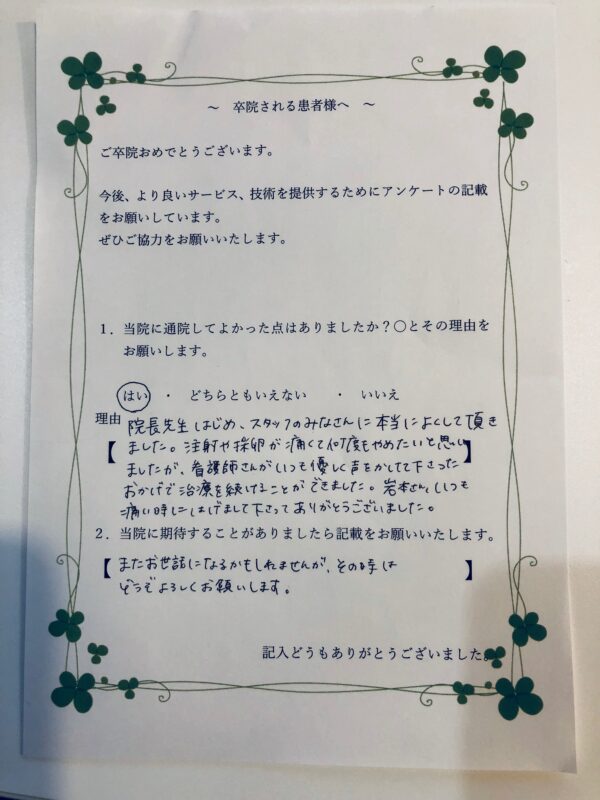 ～ 卒院される患者様へ ～
ご卒院おめでとうございます。
今後、より良いサービス、技術を提供するためにアンケートの記載
をお願いしています。
ぜひご協力をお願いいたします。
1．当院に通院してよかった点はありましたか？○とその理由を
お願いします。
はい ・ どちらともいえない ・ いいえ
理由 院長先生はじめ、スタッフのみなさんに本当によくして頂き
【 ました。注射や採卵が痛くて何度もやめたいと思い 】
ましたが、看護師さんがいつも優しく声をかけて下さった
おかげで治療を続けることができました。岩本さん、いつも
痛い時にはげまして下さってありがとうございました。
2．当院に期待することがありましたら記載をお願いいたします。
【 またお世話になるかもしれませんが、その時は 】
どうぞよろしくお願いします。
記入どうもありがとうございました。